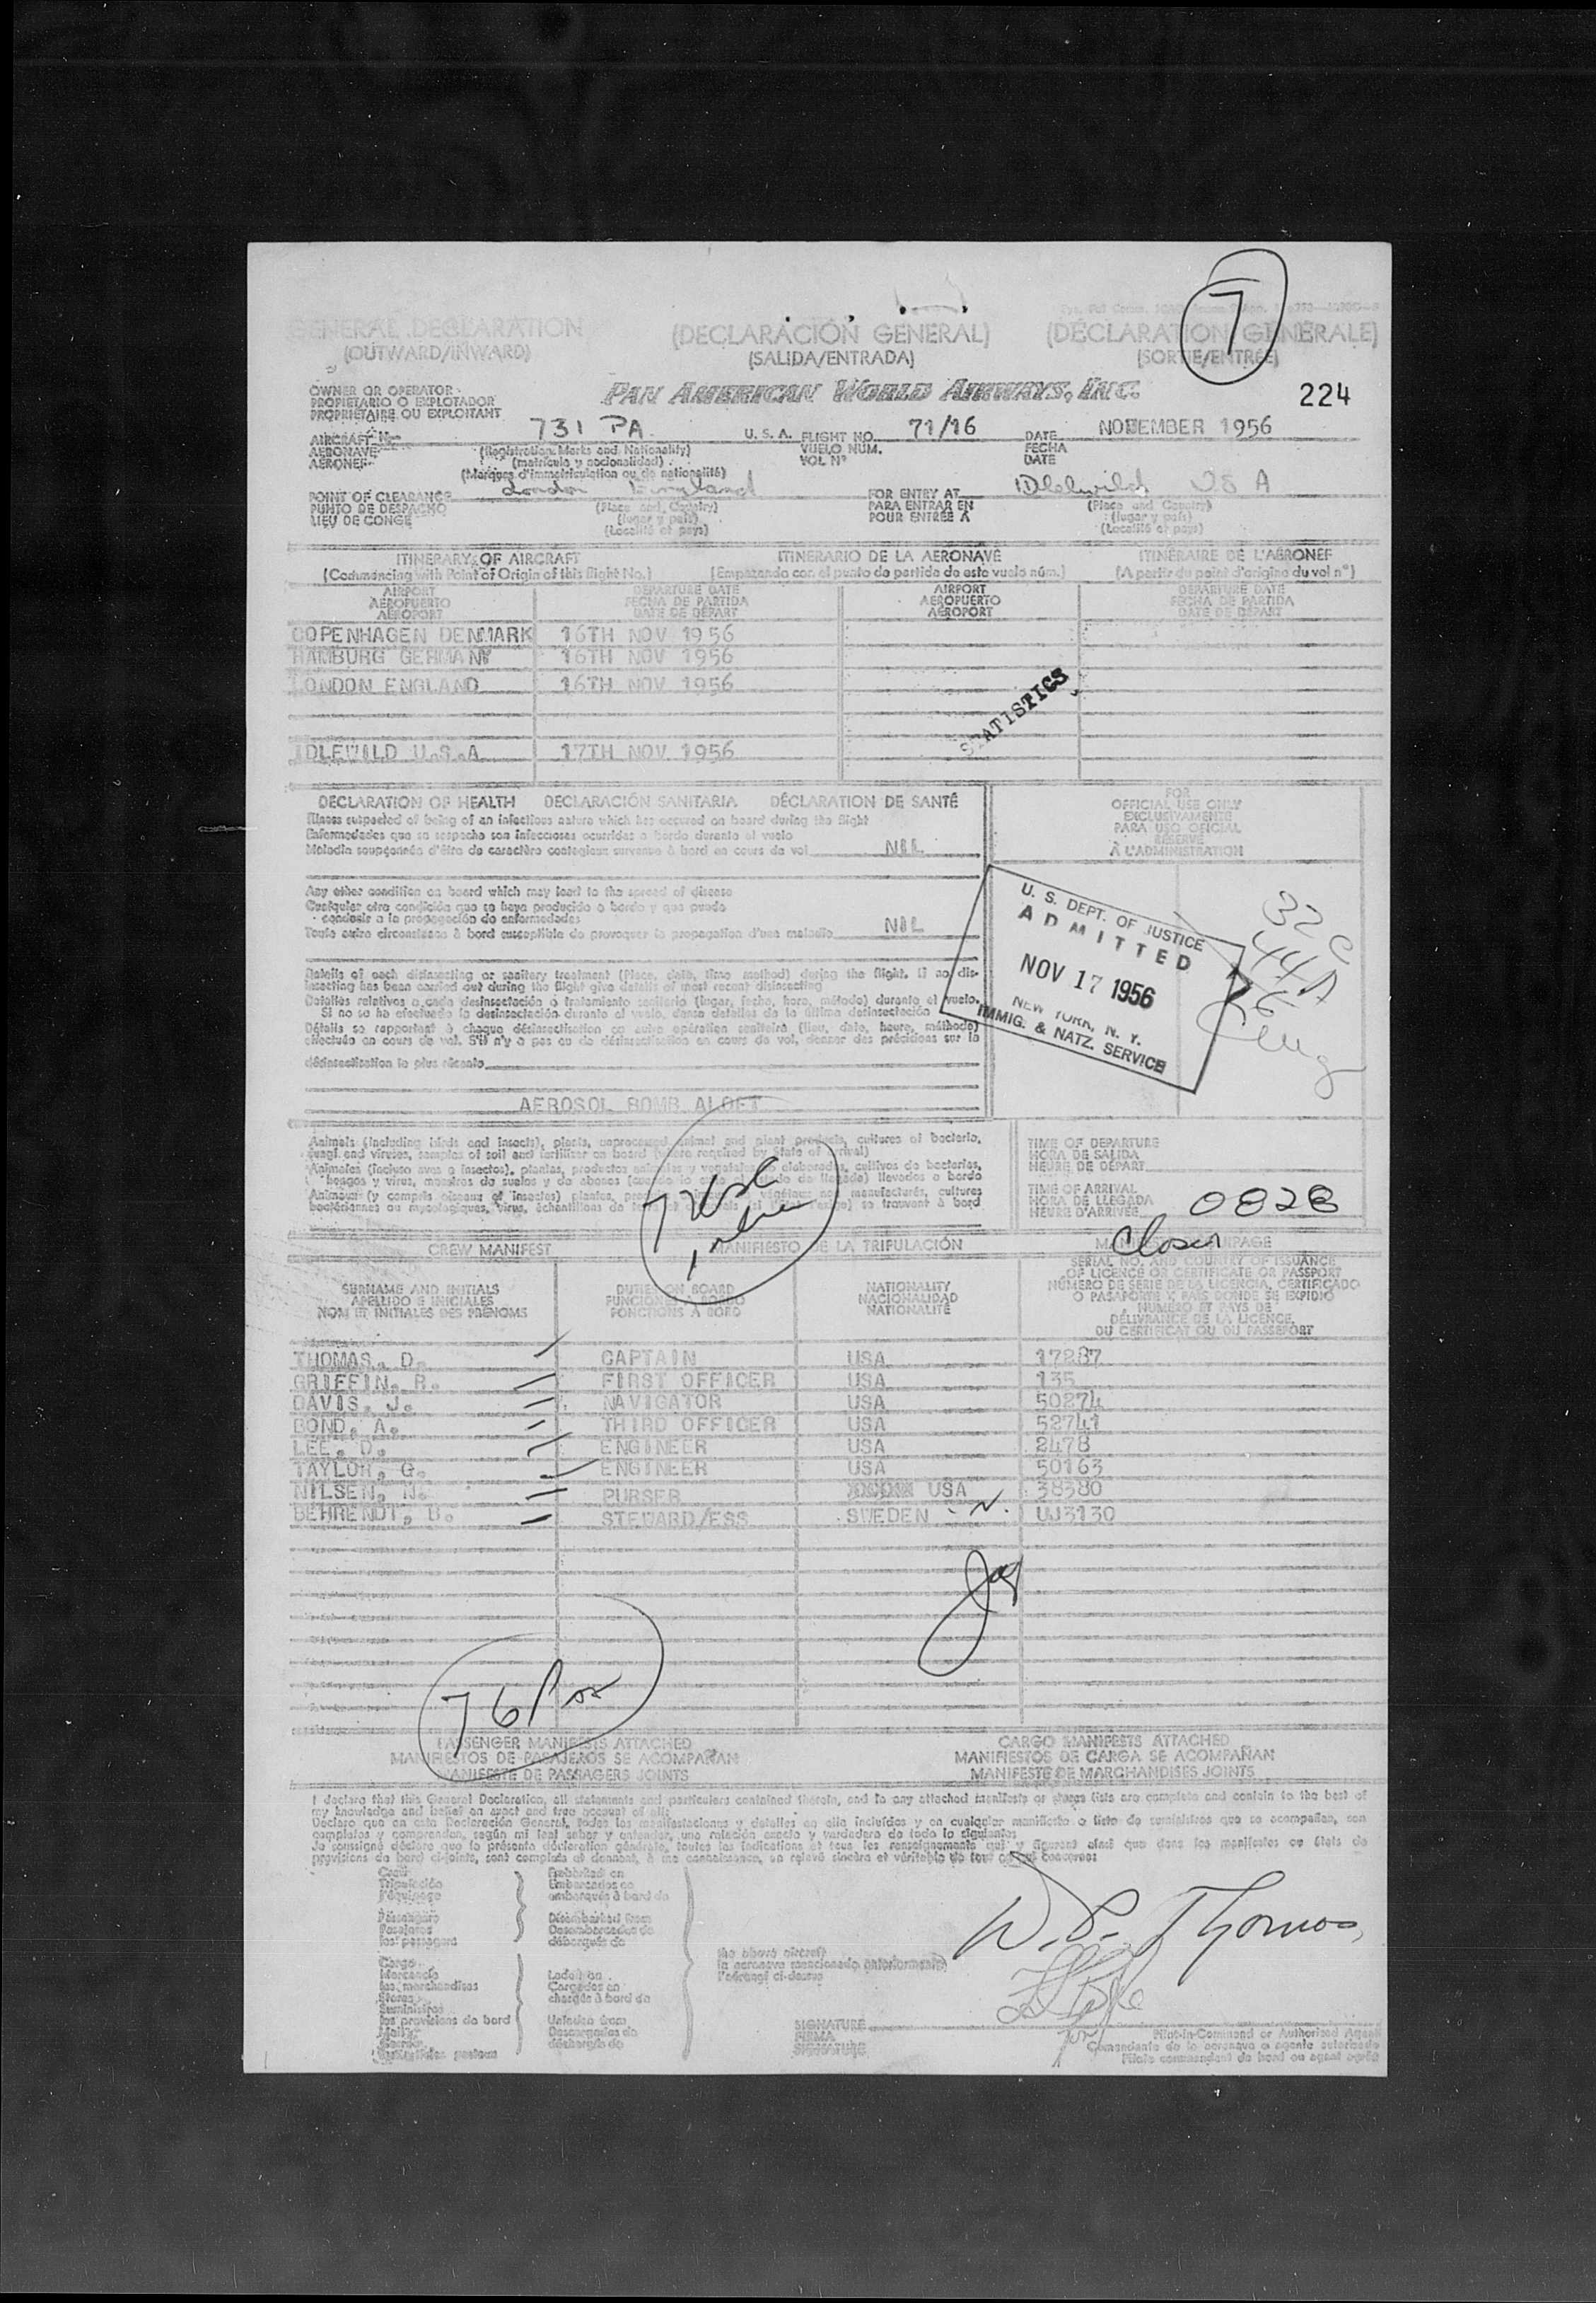 7
GENERAL DECLARATION (DECLARACIÓN GENERAL) (DÉCLARATION GÉNÉRALE)
(OUTWARD/INWARD) (SALIDA/ENTRADA) (SORTIE/ENTRÉE)
OWNER OR OPERATOR
PROPIETARIO O EXPLOTADOR
PROPRIÉTAIRE OU EXPLOITANT
PAN AMERICAN WORLD AIRWAYS, INC.
224
AIRCRAFT No. 731 PA U. S. A. FLIGHT NO. 71/16 DATE NOVEMBER 1956
AERONAVE (Registration Marks and Nationality) VUELO NUM. FECHA
AÉRONEF (matrícula y nacionalidad) VOL Nº DATE
(Marques d'immatriculation ou de nationalité)
POINT OF CLEARANCE London England FOR ENTRY AT Idlewild USA
PUNTO DE DESPACHO (Place and Country) PARA ENTRAR EN (Place and Country)
LIEU DE CONGÉ (lugar y país) POUR ENTRÉE À (lugar y país)
(Localité et pays) (Localité et pays)
ITINERARY OF AIRCRAFT ITINERARIO DE LA AERONAVE ITINÉRAIRE DE L'AÉRONEF
(Commencing with Point of Origin of this flight No.) (Empezando con el punto de partida de este vuelo núm.) (A partir du point d'origine du vol nº)
AIRPORT DEPARTURE DATE AIRPORT DEPARTURE DATE
AEROPUERTO FECHA DE PARTIDA AEROPUERTO FECHA DE PARTIDA
AÉROPORT DATE DE DÉPART AÉROPORT DATE DE DÉPART
COPENHAGEN DENMARK 16TH NOV 1956
HAMBURG GERMANY 16TH NOV 1956
LONDON ENGLAND 16TH NOV 1956
STATISTICS
IDLEWILD U.S.A 17TH NOV 1956
DECLARATION OF HEALTH DECLARACIÓN SANITARIA DÉCLARATION DE SANTÉ
Illness suspected of being of an infectious nature which has occured on board during the flight
Enfermedades que se sospecha son infecciosas ocurridas a bordo durante el vuelo
Maladie soupçonnée d'être de caractère contagieux survenue à bord en cours de vol NIL
FOR
OFFICIAL USE ONLY
EXCLUSIVAMENTE
PARA USO OFICIAL
RÉSERVÉ
À L'ADMINISTRATION
Any other condition on board which may lead to the spread of disease
Cualquier otra condición que se haya producido a bordo y que pueda
conducir a la propagación de enfermedades
Toute autre circonstance à bord susceptible de provoquer la propagation d'une maladie NIL
U. S. DEPT. OF JUSTICE
ADMITTED
NOV 17 1956
NEW YORK, N. Y.
IMMIG. & NATZ. SERVICE
32 C
44 A
Details of each disinsecting or sanitary treatment (Place, date, time method) during the flight. If no dis-
insecting has been carried out during the flight give details of most recent disinsecting
Detalles relativos a cada desinsectación o tratamiento sanitario (lugar, fecha, hora, método) durante el vuelo.
Si no se ha efectuado la desinsectación durante el vuelo, dense detalles de la última desinsectación
Détails se rapportant à chaque désinsectisation ou autre opération sanitaire (lieu, date, heure, méthode)
effectuée en cours de vol. S'il n'y a pas eu de désinsectisation en cours de vol, donner des précisions sur la
désinsectisation la plus récente
AEROSOL BOMB ALOFT
Animals (including birds and insects), plants, unprocessed animal and plant products, cultures of bacteria,
fungi and viruses, samples of soil and fertilizer on board (where required by State of arrival)
TIME OF DEPARTURE
HORA DE SALIDA
HEURE DE DÉPART
TIME OF ARRIVAL
HORA DE LLEGADA
HEURE D'ARRIVÉE
0828
CREW MANIFEST MANIFIESTO DE LA TRIPULACIÓN
SURNAME AND INITIALS
APELLIDO E INICIALES
NOM ET INITIALES DES PRÉNOMS
DUTIES ON BOARD
FUNCIONES A BORDO
FONCTIONS À BORD
NATIONALITY
NACIONALIDAD
NATIONALITÉ
SERIAL NO. AND COUNTRY OF ISSUANCE
OF LICENCE OR CERTIFICATE OR PASSPORT
NÚMERO DE SERIE DE LA LICENCIA, CERTIFICADO
O PASAPORTE Y PAÍS DONDE SE EXPIDIÓ
NUMÉRO ET PAYS DE
DÉLIVRANCE DE LA LICENCE,
DU CERTIFICAT OU DU PASSEPORT
THOMAS, D. CAPTAIN USA 17287
GRIFFIN, R. FIRST OFFICER USA 135
DAVIS, J. NAVIGATOR USA 50274
BOND, A. THIRD OFFICER USA 52741
LEE, D. ENGINEER USA 2478
TAYLOR, G. ENGINEER USA 50163
NILSEN, N. PURSER USA 38380
BEHRENDT, B. STEWARD/ESS SWEDEN - N. UJ3130
76
PASSENGER MANIFESTS ATTACHED CARGO MANIFESTS ATTACHED
MANIFIESTOS DE PASAJEROS SE ACOMPAÑAN MANIFIESTOS DE CARGA SE ACOMPAÑAN
MANIFESTE DE PASSAGERS JOINTS MANIFESTE DE MARCHANDISES JOINTS
I declare that this General Declaration, all statements and particulars contained therein, and in any attached manifests or stores lists are complete and contain to the best of
my knowledge and belief an exact and true account of all:
Declaro que en esta Declaración General, todas las manifestaciones y detalles en ella incluídos y en cualquier manifiesto o lista de suministros que se acompañen, son
completos y comprenden, según mi leal saber y entender, una relación exacta y verdadera de todo lo siguiente:
Crew
Tripulación
l'équipage
Embarked on
Embarcados en
embarqués à bord de
Passengers
Pasajeros
les passagers
Disembarked from
Desembarcados de
débarqués de
Cargo
Mercancía
les marchandises
Stores
Suministros
les provisions de bord
Laden on
Cargados en
chargés à bord de
Unladen from
Descargados de
déchargés de
the above aircraft
la aeronave mencionada anteriormente
l'aéronef ci-dessus
W. D. Thomas
SIGNATURE
FIRMA
SIGNATURE
Pilot-in-Command or Authorized Agent
Comandante de la aeronave o agente autorizado
Pilote commandant de bord ou agent agréé